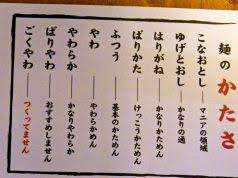 麺のかたさ
こなおとし──マニアの領域
ゆげとおし──かなりの通
はりがね──かなりかためん
ばりかた──けっこうかためん
ふつう──基本のかためん
やわ──やわらかめん
やわらか──かなりやわらか
ばりやわ──おすすめしません
ごくやわ──つくってません